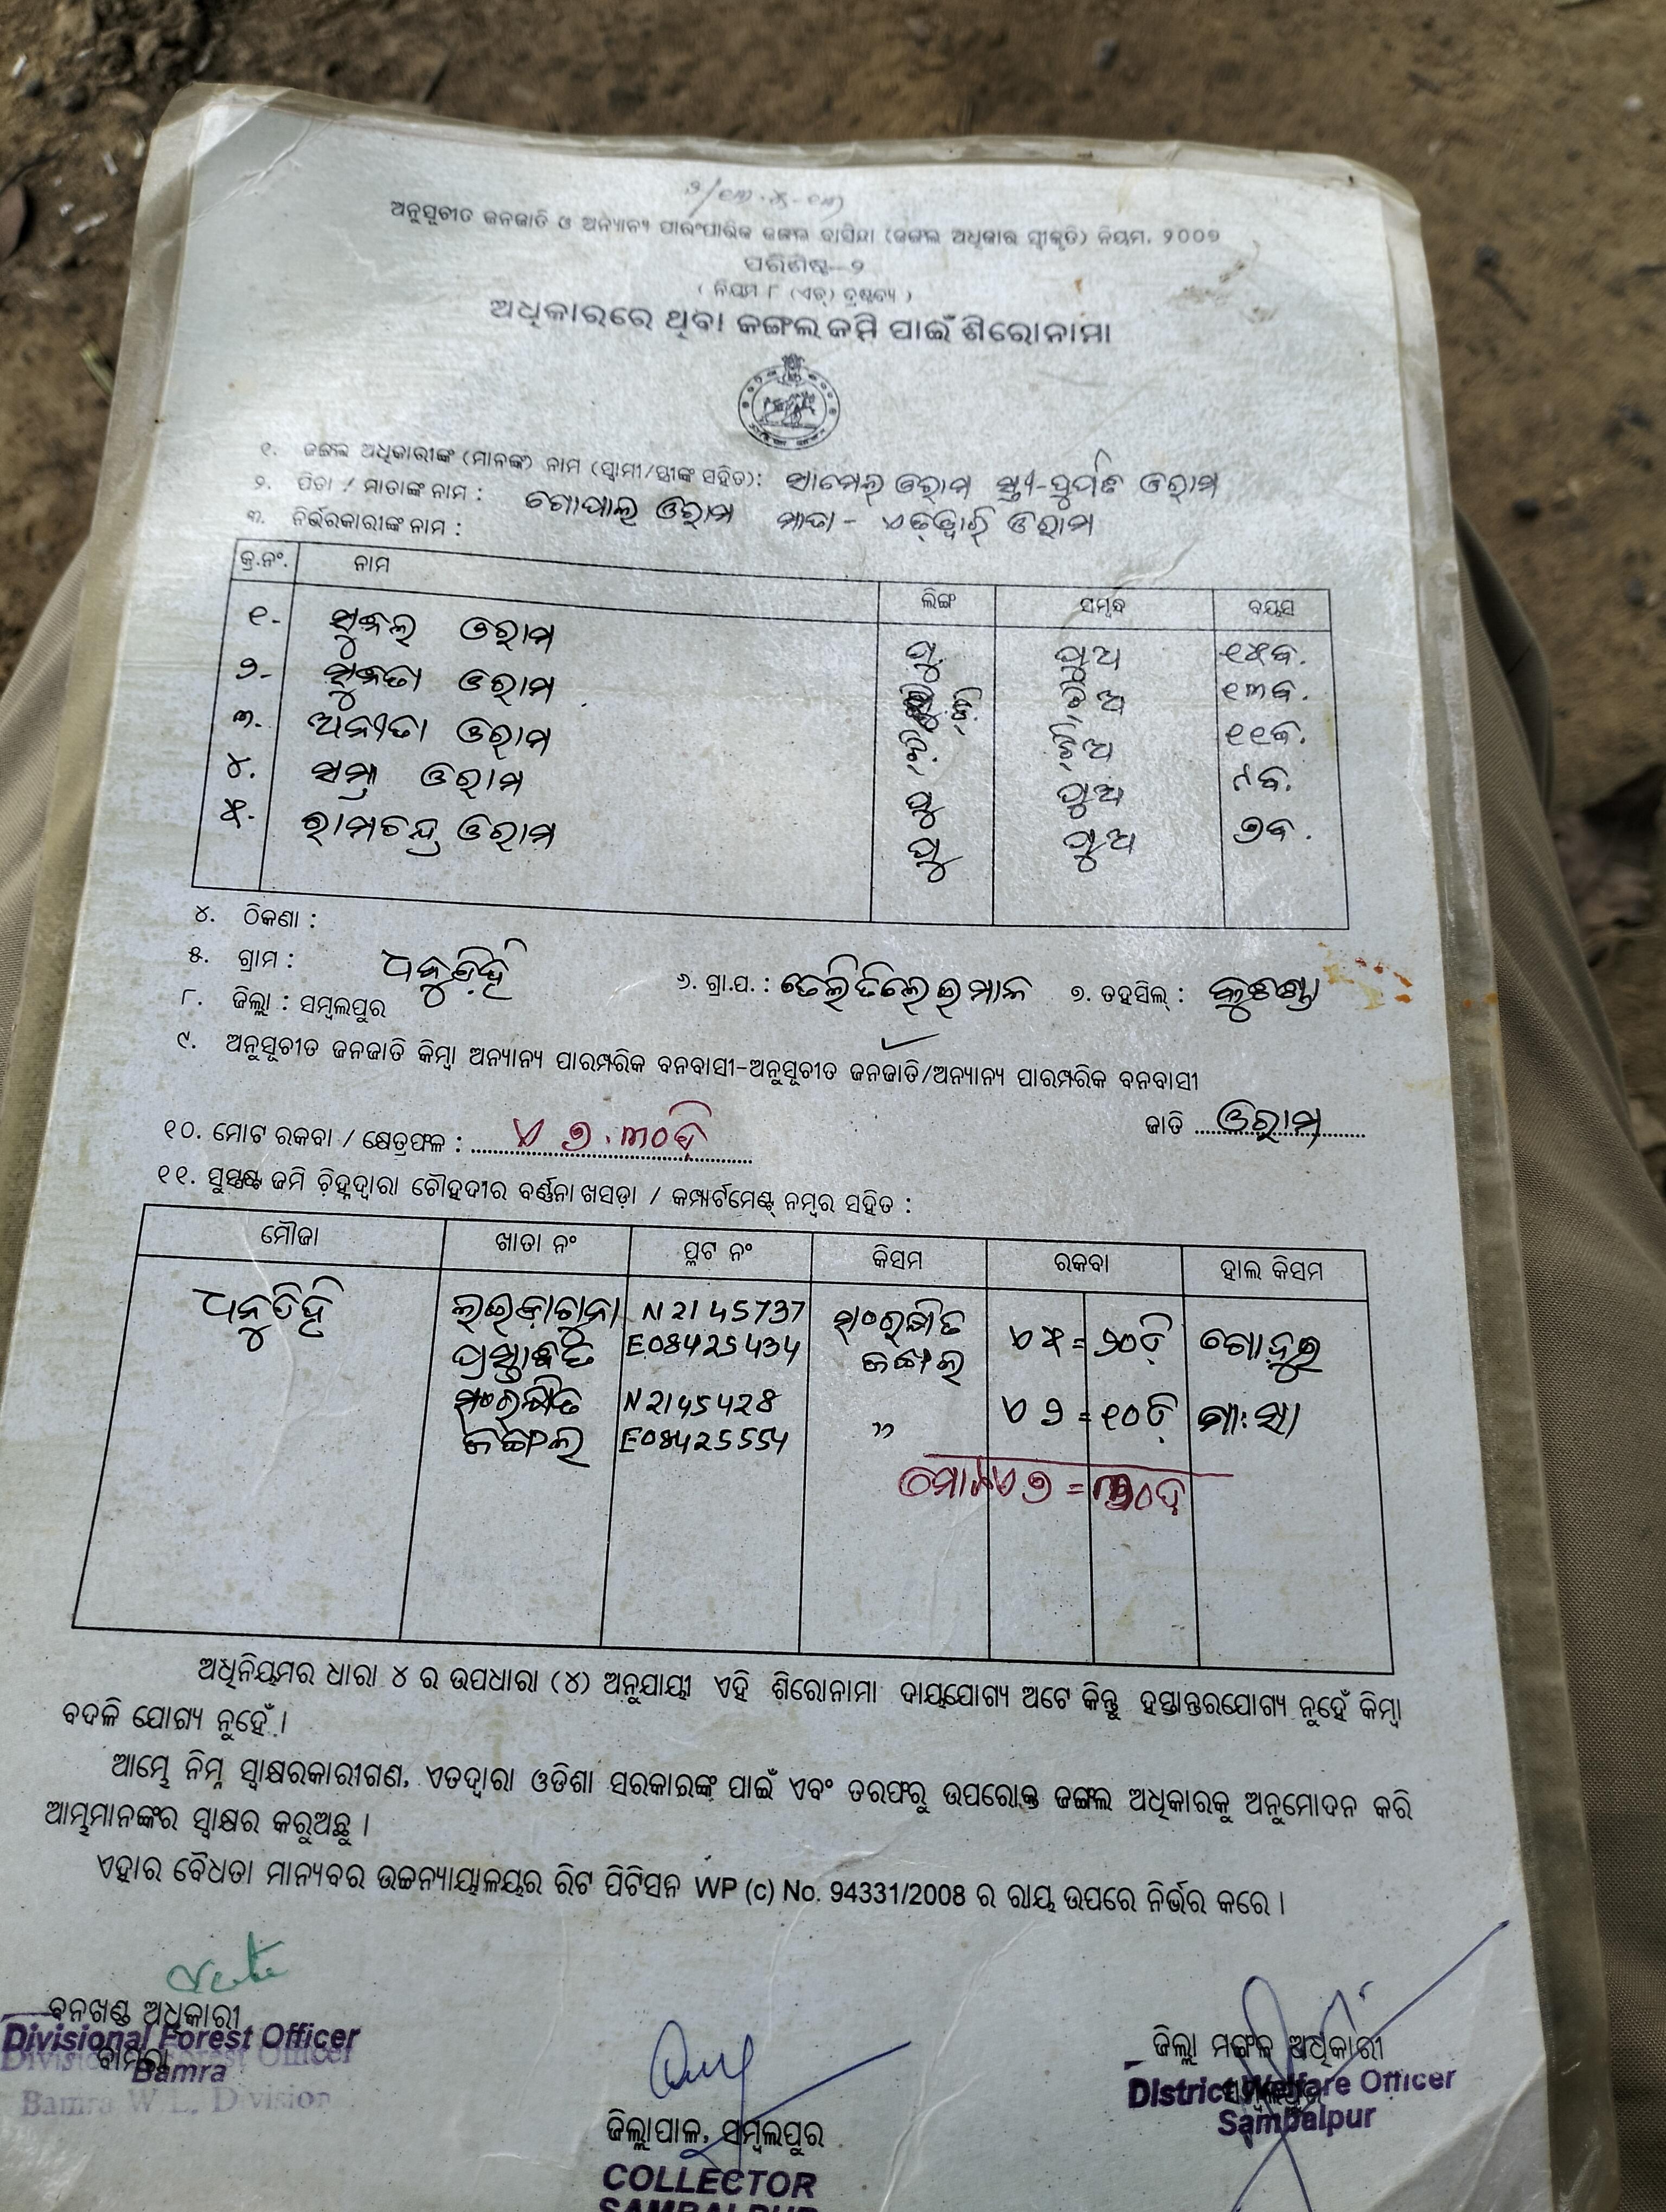 ଅନୁସୂଚୀତ ଜନଜାତି ଓ ଅନ୍ୟାନ୍ୟ ପାରଂପାରିକ ଜଙ୍ଗଲ ବାସିନ୍ଦା (ଜଙ୍ଗଲ ଅଧିକାର ସ୍ୱୀକୃତି) ନିୟମ, ୨୦୦୭
ପରିଶିଷ୍ଟ-୨
( ନିୟମ ୮ (ଏଚ୍) ଦ୍ରଷ୍ଟବ୍ୟ )
ଅଧିକାରରେ ଥିବା ଜଙ୍ଗଲ ଜମି ପାଇଁ ଶିରୋନାମା
୧. ଜଙ୍ଗଲ ଅଧିକାରୀଙ୍କ (ମାନଙ୍କ) ନାମ (ସ୍ୱାମୀ/ସ୍ତ୍ରୀଙ୍କ ସହିତ): ସାମେଲ୍ ଓରାମ ସ୍ତ୍ରୀ- ଓରାମ
୨. ପିତା / ମାତାଙ୍କ ନାମ : ଗୋପାଲ ଓରାମ ମାତା - ଓରାମ
୩. ନିର୍ଭରକାରୀଙ୍କ ନାମ :
କ୍ର.ନଂ. ନାମ ଲିଙ୍ଗ ସମ୍ବନ୍ଧ ବୟସ
୧- ସୁଜଲ ଓରାମ ପୁ. ପୁଅ ୧୫ବ.
୨- ସୁଜତା ଓରାମ ଝି. ଝିଅ ୧୩ବ.
୩- ଅନୀତା ଓରାମ ଝି. ଝିଅ ୧୧ବ.
୪. ସମ୍ରା ଓରାମ ପୁ ପୁଅ ୯ବ.
୫- ରାମଚନ୍ଦ୍ର ଓରାମ ପୁ ପୁଅ ୭ବ.
୪. ଠିକଣା :
୫. ଗ୍ରାମ : ଧନୁଡିହି ୬. ଗ୍ରା.ପ. : ତେଲିତିଲେଇମାଳ ୭. ତହସିଲ୍ : କୁଚିଣ୍ଡା
୮. ଜିଲ୍ଲା : ସମ୍ବଲପୁର
୯. ଅନୁସୂଚୀତ ଜନଜାତି କିମ୍ବା ଅନ୍ୟାନ୍ୟ ପାରମ୍ପରିକ ବନବାସୀ-ଅନୁସୂଚୀତ ଜନଜାତି/ଅନ୍ୟାନ୍ୟ ପାରମ୍ପରିକ ବନବାସୀ
ଜାତି ଓରାମ
୧୦. ମୋଟ ରକବା / କ୍ଷେତ୍ରଫଳ : ଏ ୭.୩୦ଡି
୧୧. ସୁସ୍ପଷ୍ଟ ଜମି ଚିହ୍ନଦ୍ୱାରା ଚୌହଦୀର ବର୍ଣ୍ଣନା ଖସଡ଼ା / କମ୍ପାର୍ଟମେଣ୍ଟ୍ ନମ୍ବର ସହିତ :
ମୌଜା ଖାତା ନଂ ପ୍ଲଟ ନଂ କିସମ ରକବା ହାଲ କିସମ
ଧନୁଡିହି N2145737 ସଂରକ୍ଷିତ ଏ ୫ = ୨୦ଡି
ପ୍ରସ୍ତାବିତ E08425434 ଜଙ୍ଗଲ
ସଂରକ୍ଷିତ N2145428 " ଏ ୨ = ୧୦ଡି
ଜଙ୍ଗଲ E08425554
ମୋଟ ଏ ୭ = ୩୦ଡି
ଅଧିନିୟମର ଧାରା ୪ ର ଉପଧାରା (୪) ଅନୁଯାୟୀ ଏହି ଶିରୋନାମା ଦାୟଯୋଗ୍ୟ ଅଟେ କିନ୍ତୁ ହସ୍ତାନ୍ତରଯୋଗ୍ୟ ନୁହେଁ କିମ୍ବା
ବଦଳି ଯୋଗ୍ୟ ନୁହେଁ ।
ଆମ୍ଭେ ନିମ୍ନ ସ୍ୱାକ୍ଷରକାରୀଗଣ, ଏତଦ୍ୱାରା ଓଡିଶା ସରକାରଙ୍କ ପାଇଁ ଏବଂ ତରଫରୁ ଉପରୋକ୍ତ ଜଙ୍ଗଲ ଅଧିକାରକୁ ଅନୁମୋଦନ କରି
ଆମ୍ଭମାନଙ୍କର ସ୍ୱାକ୍ଷର କରୁଅଛୁ ।
ଏହାର ବୈଧତା ମାନ୍ୟବର ଉଚ୍ଚନ୍ୟାୟାଳୟର ରିଟ ପିଟିସନ WP (c) No. 94331/2008 ର ରାୟ ଉପରେ ନିର୍ଭର କରେ ।
ବନଖଣ୍ଡ ଅଧିକାରୀ
Divisional Forest Officer
ବାମରା
Bamra
Bamra W.L. Division
ଜିଲ୍ଲାପାଳ, ସମ୍ବଲପୁର
COLLECTOR
SAMBALPUR
ଜିଲ୍ଲା ମଙ୍ଗଳ ଅଧିକାରୀ
District Welfare Officer
ସମ୍ବଲପୁର
Sambalpur